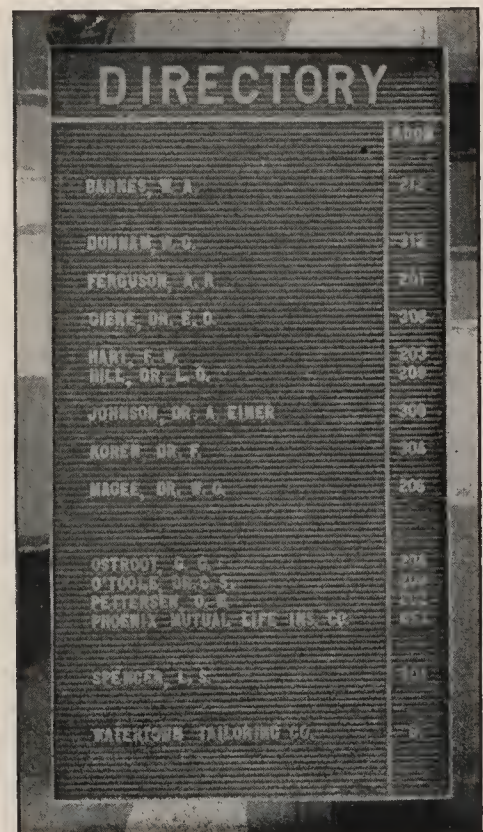 DIRECTORY
ROOM
BARNES, W. A. 212
DUNHAM, W. G. 312
FERGUSON, A. R. 201
GIERE, DR. E. O. 308
HART, F. W. 203
HILL, DR. L. G. 208
JOHNSON, DR. A. EINER 308
KOREN, DR. F. 304
MAGEE, DR. W. G. 206
OSTROOT, G. G.
O'TOOLE, DR. C. S.
PETTERSEN, O. H.
PHOENIX MUTUAL LIFE INS. CO.
SPENCER, L. S.
WATERTOWN TAILORING CO.